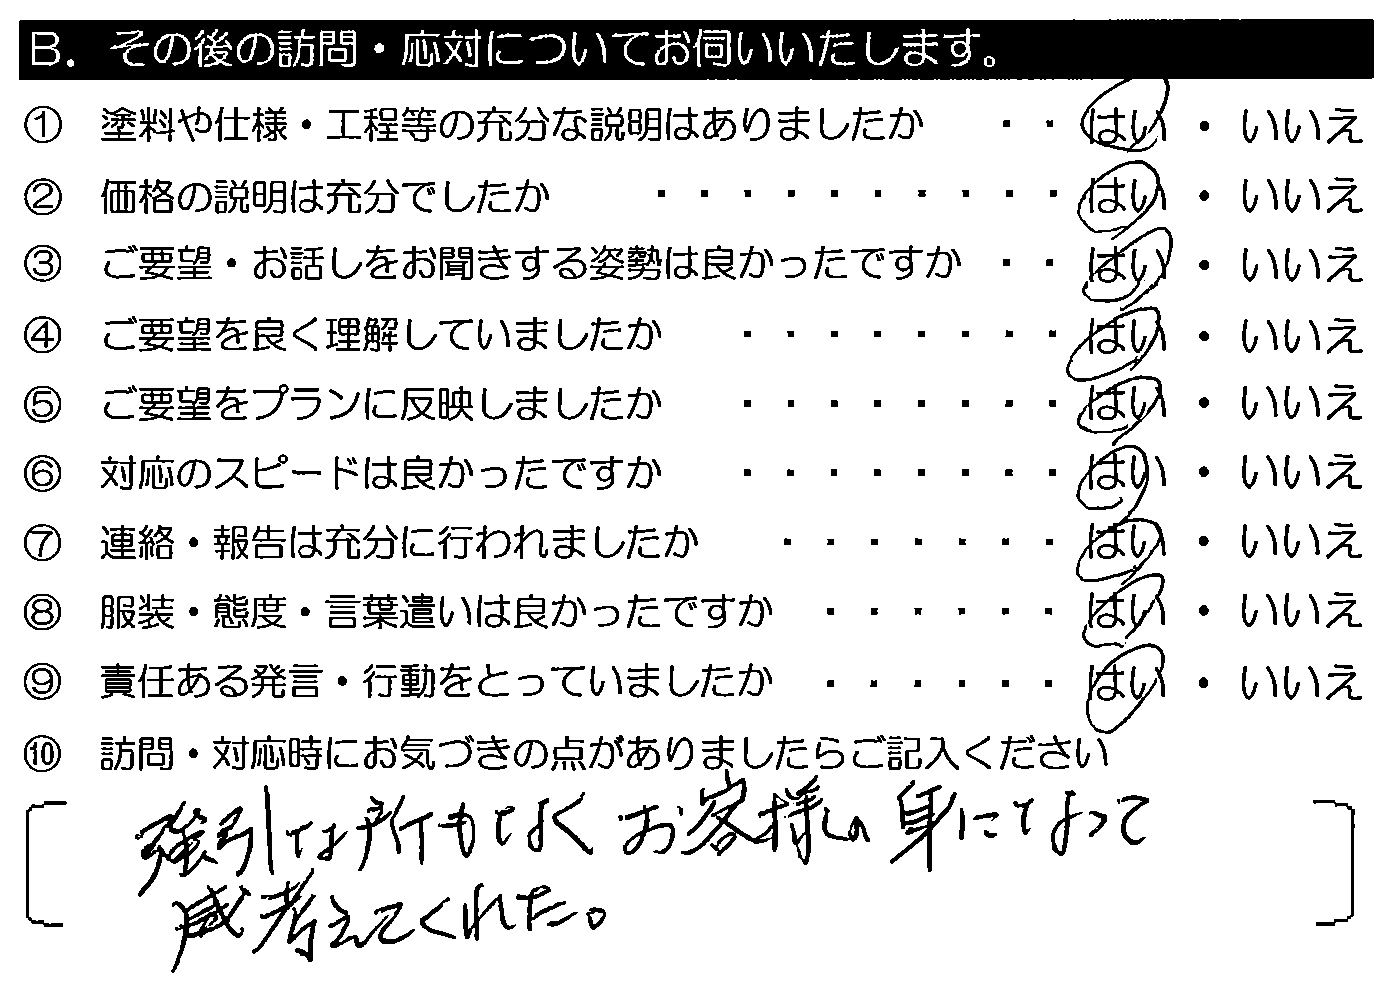 B. その後の訪問・応対についてお伺いいたします。
① 塗料や仕様・工程等の充分な説明はありましたか ・・はい・いいえ
② 価格の説明は充分でしたか ・・・・・・・・・・・・はい・いいえ
③ ご要望・お話しをお聞きする姿勢は良かったですか ・・はい・いいえ
④ ご要望を良く理解していましたか ・・・・・・・・はい・いいえ
⑤ ご要望をプランに反映しましたか ・・・・・・・・はい・いいえ
⑥ 対応のスピードは良かったですか ・・・・・・・・はい・いいえ
⑦ 連絡・報告は充分に行われましたか ・・・・・・・はい・いいえ
⑧ 服装・態度・言葉遣いは良かったですか ・・・・・・はい・いいえ
⑨ 責任ある発言・行動をとっていましたか ・・・・・・はい・いいえ
⑩ 訪問・対応時にお気づきの点がありましたらご記入ください
強引な所もなくお客様の身になって
考えてくれた。